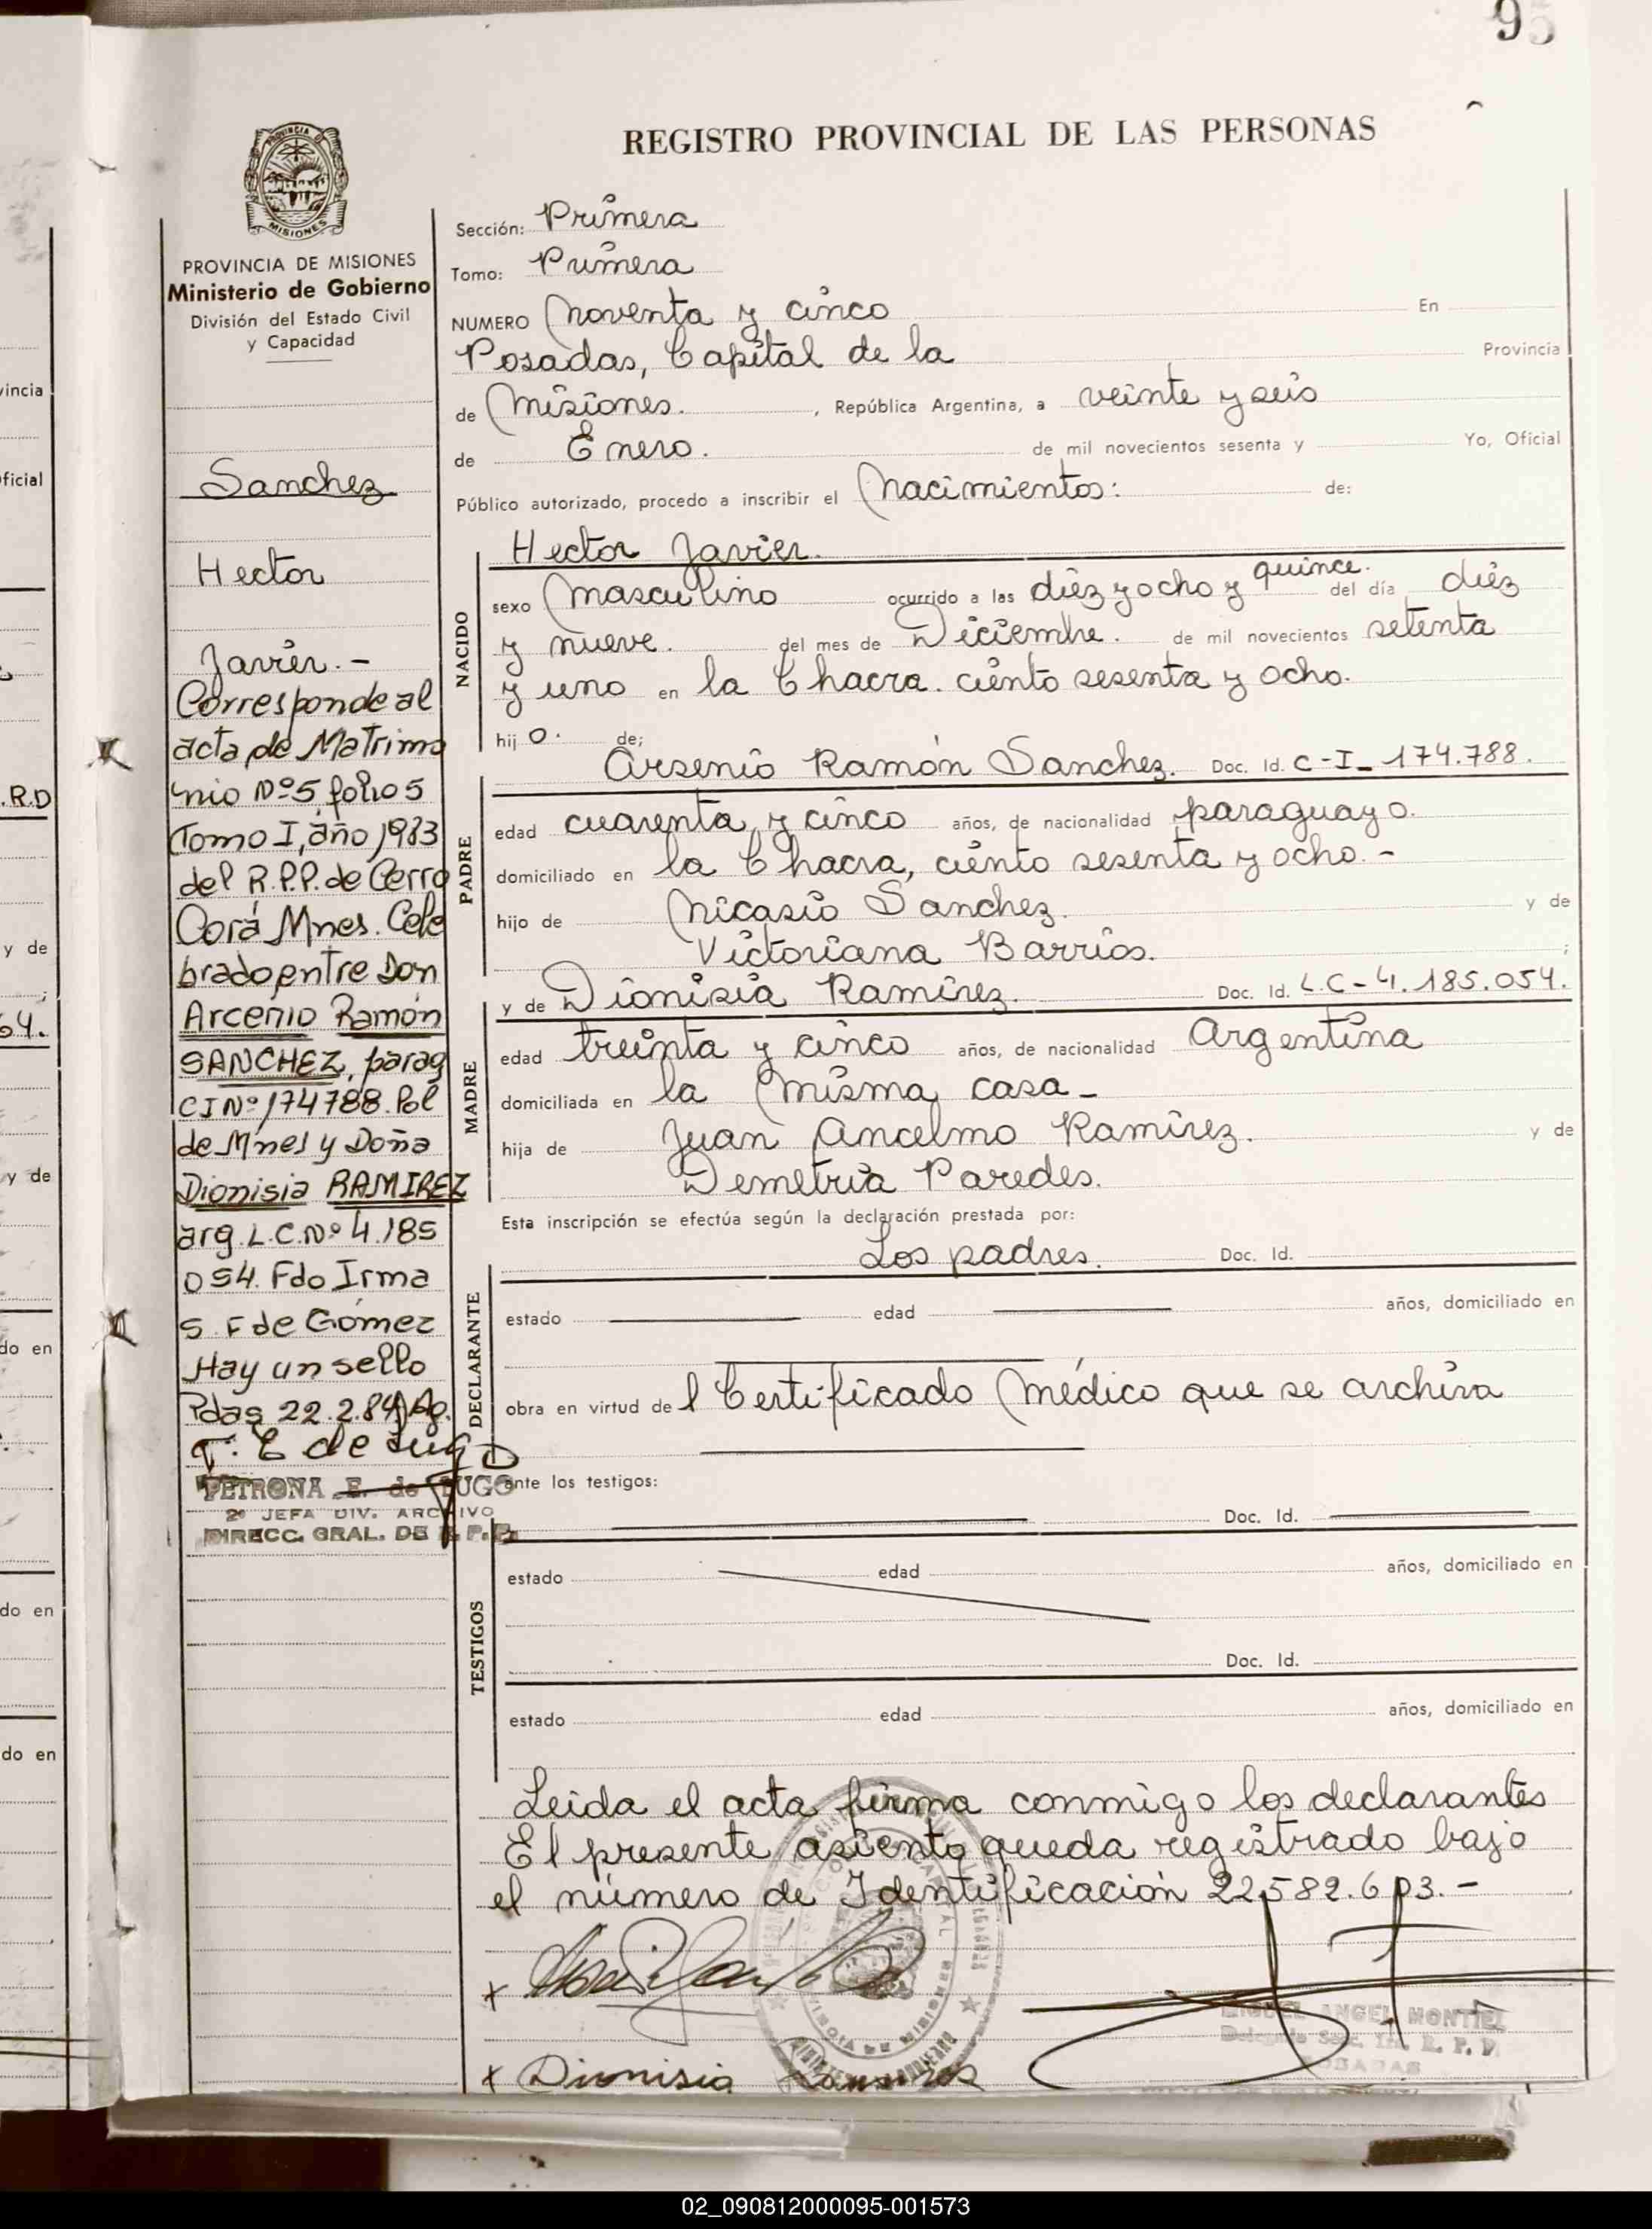 95
REGISTRO PROVINCIAL DE LAS PERSONAS
PROVINCIA DE MISIONES
MISIONES
PROVINCIA DE MISIONES
Ministerio de Gobierno
División del Estado Civil
y Capacidad
Sanchez
Hector
Javier.-
Corresponde al
acta de Matrimo
nio Nº5 folio 5
Tomo I, año 1983
del R.P.P. de Cerro
Corá Mnes. Cele
brado entre Don
Arcenio Ramón
SANCHEZ, parag
CI Nº 174788. Pol
de Mnes y Doña
Dionisia RAMIREZ
arg. L.C. Nº 4.185
054. Fdo Irma
S. F de Gómez
Hay un sello
Pdas 22.2.84
P. E de Lugo
PETRONA E. de LUGO
2º JEFA DIV. ARCHIVO
DIRECC. GRAL. DE R. P. P.
Sección: Primera
Tomo: Primera
NUMERO Noventa y cinco En
Posadas, Capital de la Provincia
de Misiones. , República Argentina, a veinte y seis
de Enero. de mil novecientos sesenta y Yo, Oficial
Público autorizado, procedo a inscribir el Nacimientos: de:
NACIDO
Hector Javier.
sexo Masculino ocurrido a las diez y ocho y quince. del día diez
y nueve. del mes de Diciembre. de mil novecientos setenta
y uno en la Chacra. ciento sesenta y ocho.
hijo. de;
PADRE
Arsenio Ramón Sanchez. Doc. Id. C-I- 174.788.
edad cuarenta y cinco años, de nacionalidad paraguayo.
domiciliado en la Chacra, ciento sesenta y ocho.-
hijo de Nicasio Sanchez. y de
Victoriana Barrios. ;
MADRE
y de Dionisia Ramirez. Doc. Id. L.C-4.185.054.
edad treinta y cinco años, de nacionalidad Argentina
domiciliada en la misma casa-
hija de Juan Ancelmo Ramirez. y de
Demetria Paredes.
Esta inscripción se efectúa según la declaración prestada por:
DECLARANTE
Los padres. Doc. Id.
estado edad años, domiciliado en
obra en virtud del Certificado Médico que se archiva
ante los testigos:
TESTIGOS
Doc. Id.
estado edad años, domiciliado en
Doc. Id.
estado edad años, domiciliado en
Leida el acta firma conmigo los declarantes
El presente asiento queda registrado bajo
el número de Identificación 22.582.603.-
x
MIGUEL ANGEL MONTIEL
R. P. P.
POSADAS
x Dionisia Ramirez
vincia
oficial
.R.D
y de
64.
y de
do en
do en
do en
02_090812000095-001573